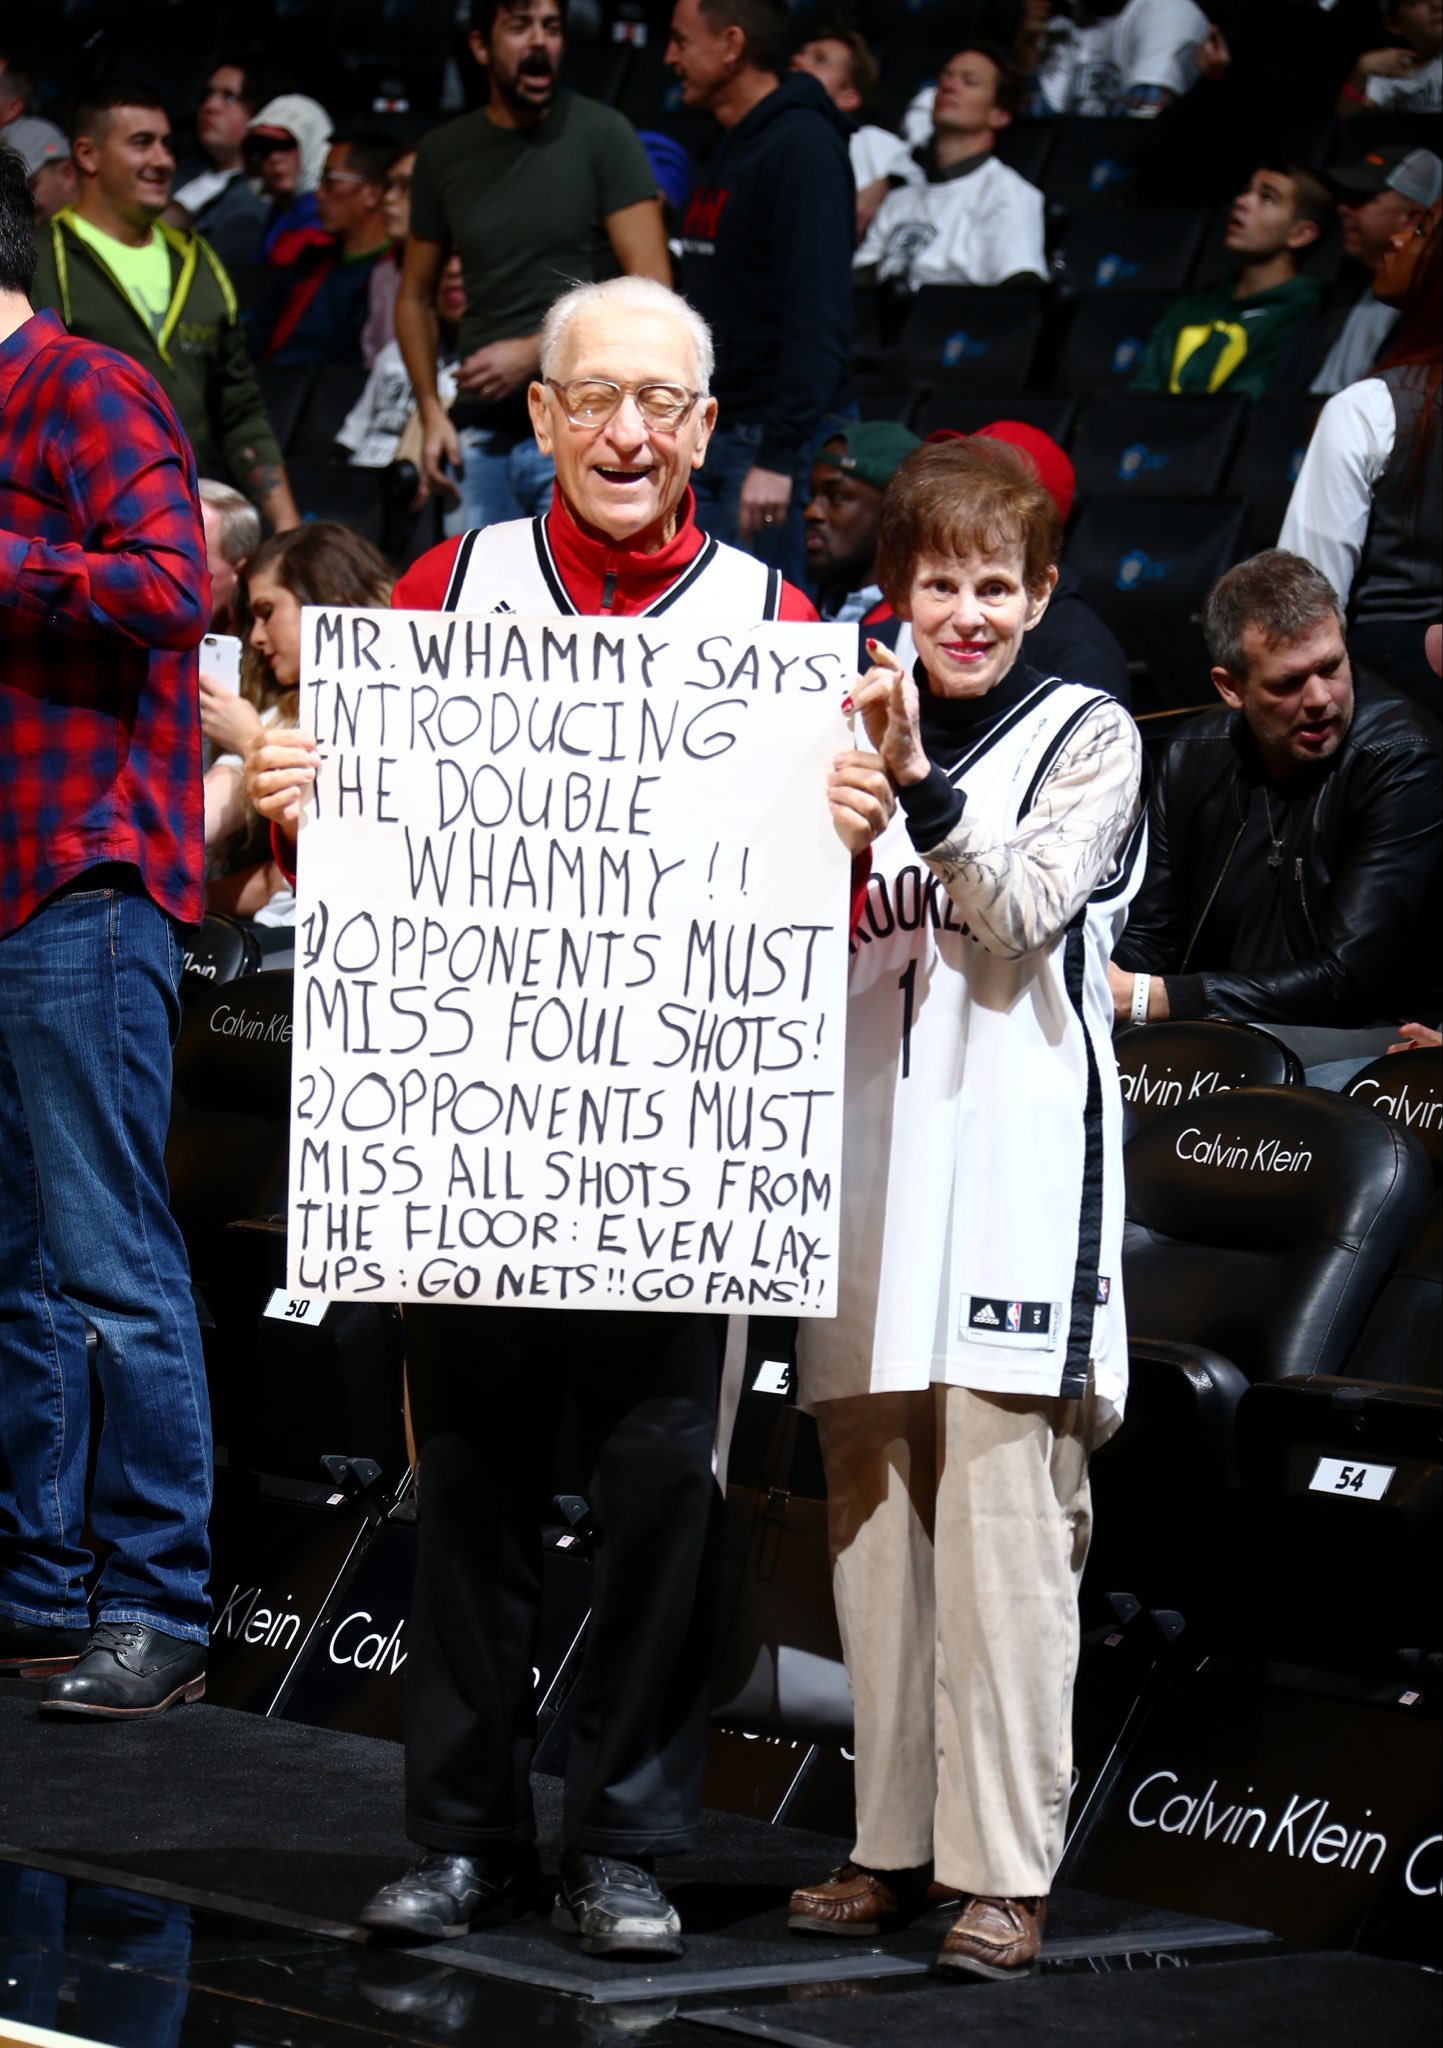 MR. WHAMMY SAYS:
INTRODUCING
THE DOUBLE
WHAMMY!!
1) OPPONENTS MUST
MISS FOUL SHOTS!
2) OPPONENTS MUST
MISS ALL SHOTS FROM
THE FLOOR: EVEN LAY-
UPS: GO NETS!! GO FANS!!
1
adidas
S
50
54
Calvin Klein
Calvin Klein
Klein